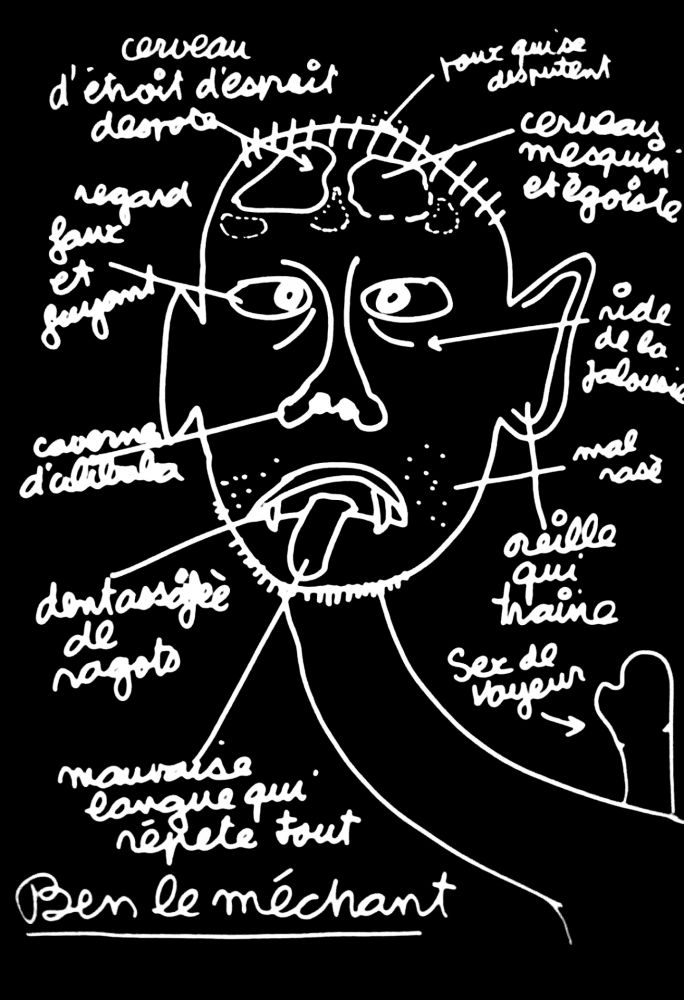 cerveau
d'étroit d'esprit
despote
poux qui se
disputent
cerveau
mesquin
et égoiste
regard
faux
et
fuyant
ride
de la
jalousie
caverne
d'alibaba
mal
rasé
oreille
qui
traine
dent assoifèè
de
ragots
Sex de
voyeur
mauvaise
langue qui
répete tout
Ben le méchant